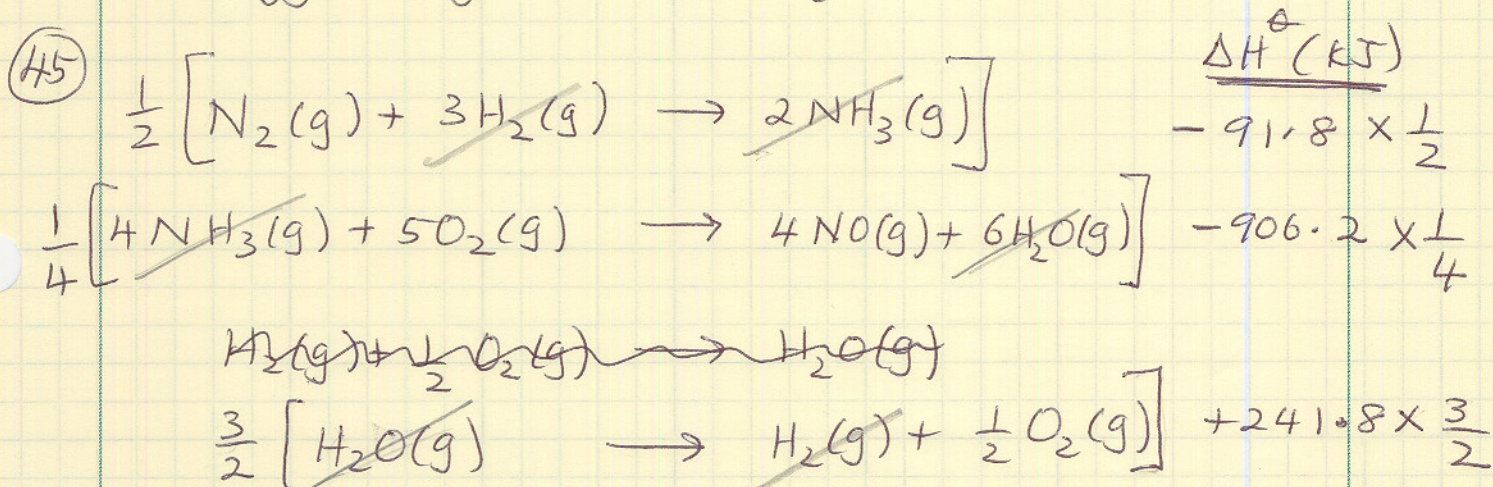 45
ΔH° (kJ)
1/2 [N₂(g) + 3H₂(g) → 2NH₃(g)] - 91.8 × 1/2
1/4 [4NH₃(g) + 5O₂(g) → 4NO(g) + 6H₂O(g)] -906.2 × 1/4
H₂(g) + 1/2 O₂(g) → H₂O(g)
3/2 [H₂O(g) → H₂(g) + 1/2 O₂(g)] +241.8 × 3/2